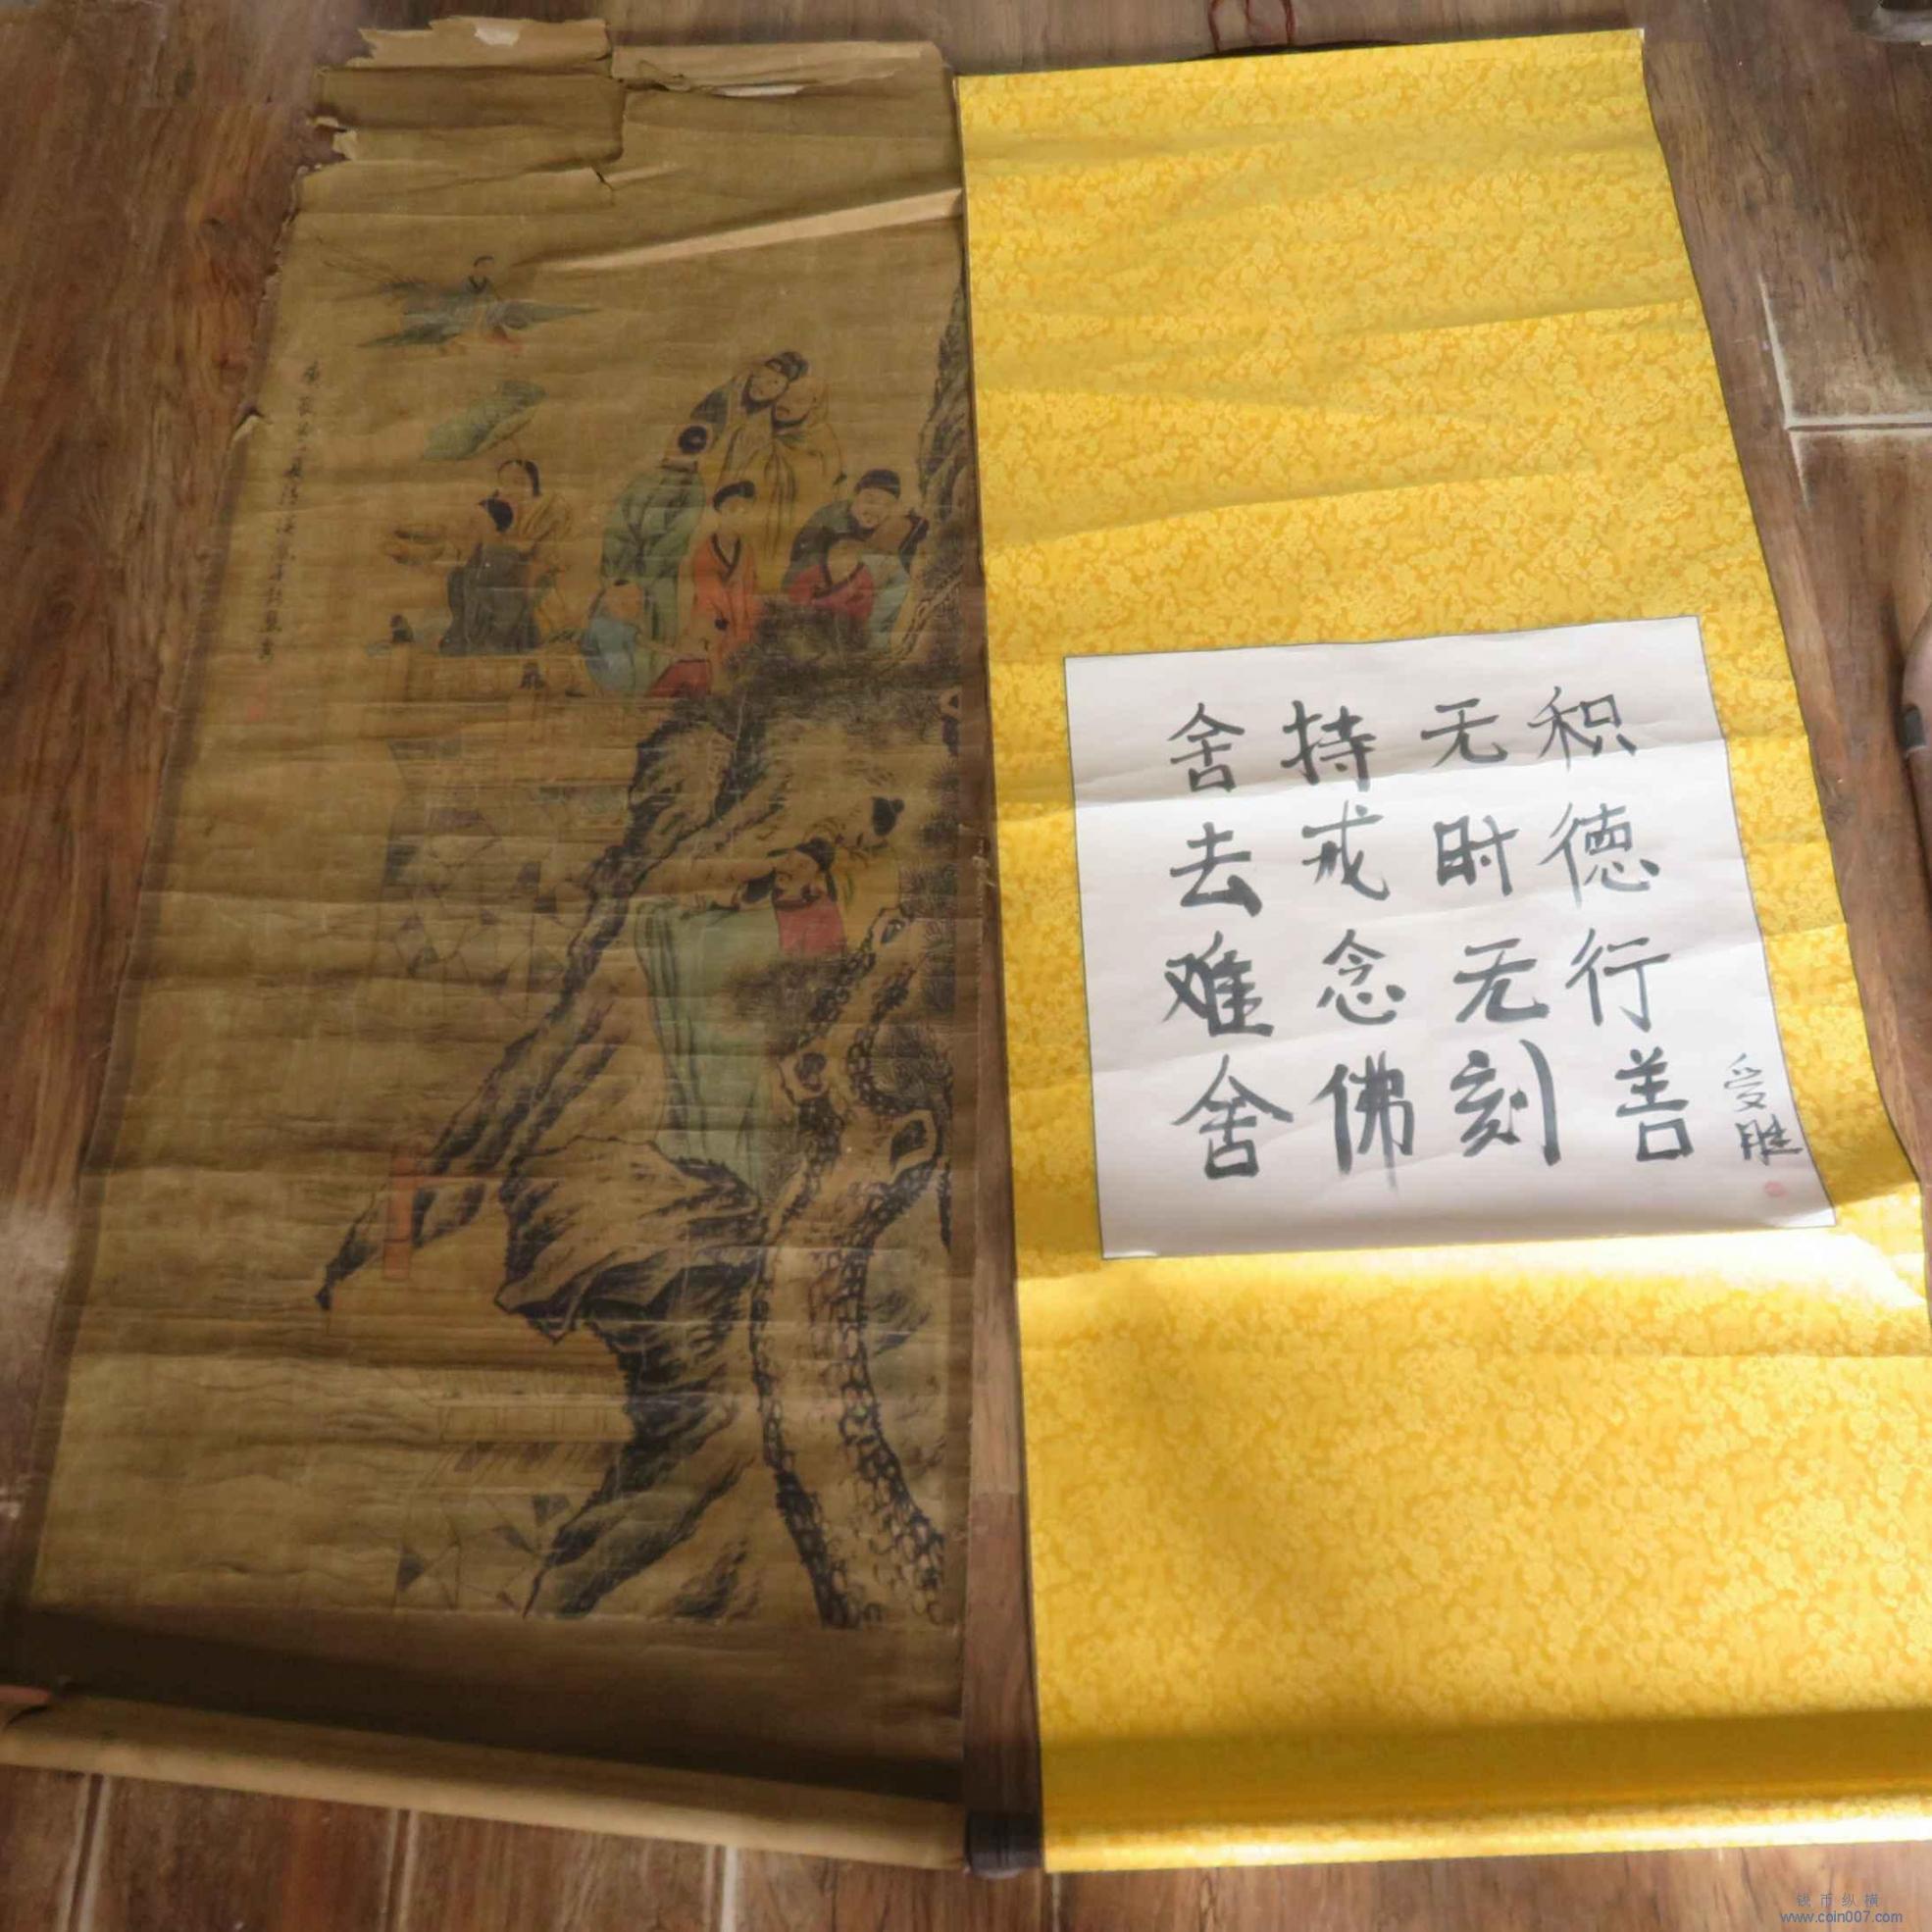 积德行善
无时无刻
持戒念佛
舍去难舍
受胜
钱币纵横
www.coin007.com